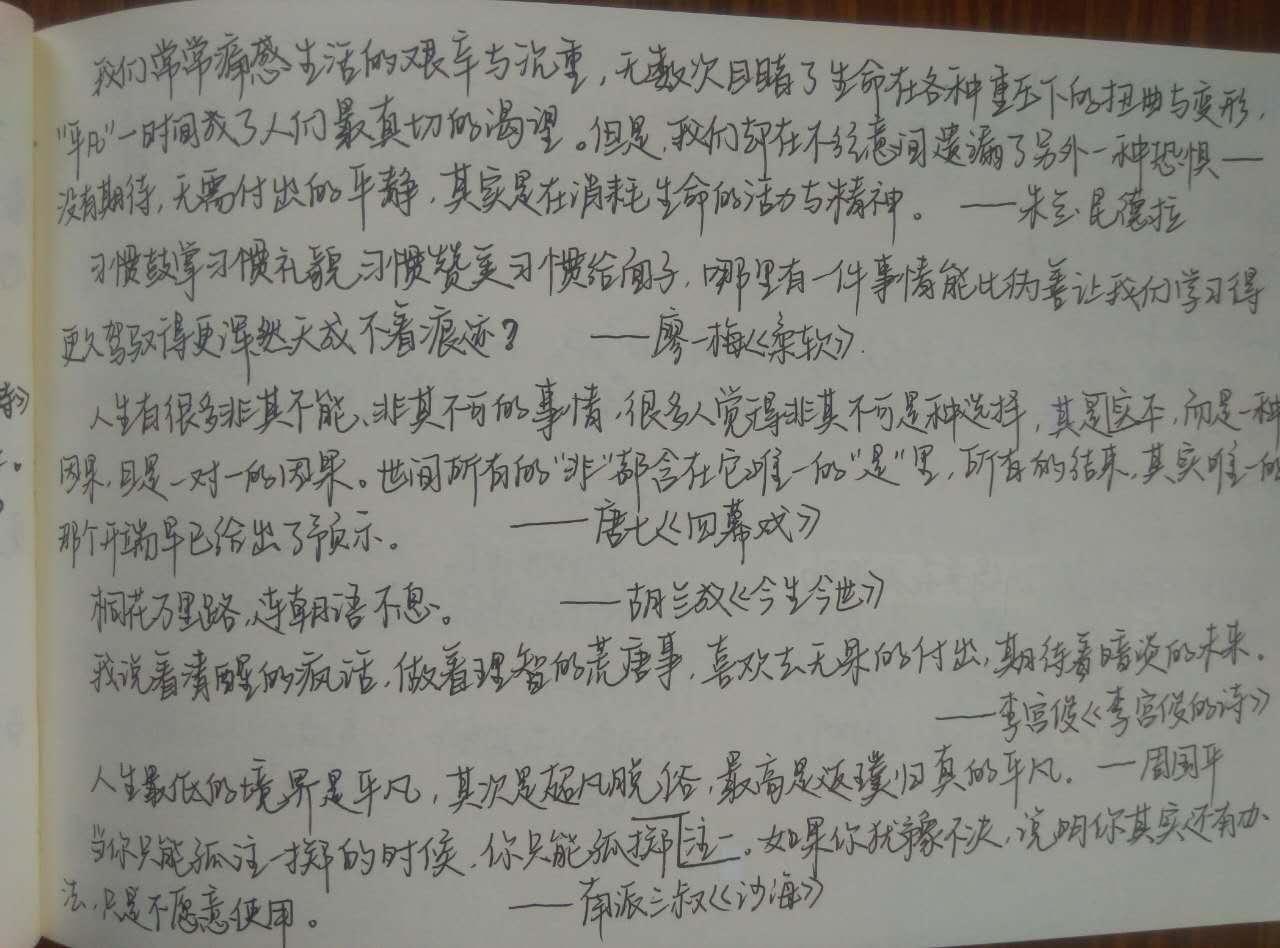 我们常常痛感生活的艰辛与沉重，无数次目睹了生命在各种重压下的扭曲与变形，
“平凡”一时间成了人们最真切的渴望。但是，我们却在不经意间遗漏了另外一种恐惧——
没有期待，无需付出的平静，其实是在消耗生命的活力与精神。 ——米兰·昆德拉
习惯鼓掌习惯礼貌习惯赞美习惯给面子，哪里有一件事情能比伪善让我们学习得
更久驾驭得更浑然天成不着痕迹？ ——廖一梅《柔软》.
人生有很多非其不能、非其不可的事情，很多人觉得非其不可是种选择，其实不，而是一种
因果，且是一对一的因果。世间所有的“非”都含在它唯一的“是”里，所有的结果，其实唯一的
那个开端早已给出了预示。 ——唐七《四幕戏》
桐花万里路，连朝语不息。 ——胡兰成《今生今世》
诗》
我说着清醒的疯话，做着理智的荒唐事，喜欢去无果的付出，期待着暗淡的未来。
——李宫俊《李宫俊的诗》
人生最低的境界是平凡，其次是超凡脱俗，最高是返璞归真的平凡。 —周国平
当你只能孤注一掷的时候，你只能孤掷注一。如果你犹豫不决，说明你其实还有办
法，只是不愿意使用。 ——南派三叔《沙海》